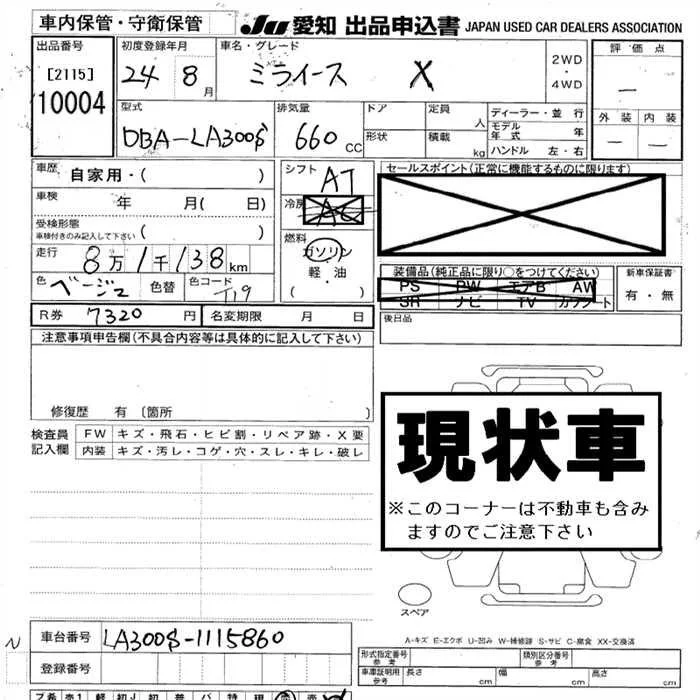 車内保管・守衛保管
JU 愛知 出品申込書 JAPAN USED CAR DEALERS ASSOCIATION
出品番号
[2115]
10004
初度登録年月
24 8月
車名・グレード
ミライース X
2WD
・
4WD
評価点
—
外装 内装
— —
型式
DBA-LA300S
排気量
660 cc
ドア
形状
定員 人
積載 kg
ディーラー・並 行
モデル年式 年
ハンドル 左・右
車歴 自家用・( )
車検 年 月( 日)
受検形態
車検付きのみ記入して下さい ( )
走行 8万1千138km
色 ベージュ 色替 色コード T19
シフト AT
冷房 AC
燃料
ガソリン
軽・油
( )
セールスポイント(正常に機能するものに限ります)
装備品(純正品に限り○をつけてください)
PS PW エアB AW
SR ナビ TV カワシート
新車保証書
有・無
R券 7320円 名変期限 月 日
後日品
注意事項申告欄(不具合内容等は具体的に記入して下さい)
修復歴 有 〔箇所 〕
検査員記入欄
FW キズ・飛石・ヒビ割・リペア跡・X要
内装 キズ・汚レ・コゲ・穴・スレ・キレ・破レ
現状車
※このコーナーは不動車も含み
ますのでご注意下さい
スペア
A-キズ E-エクボ U-凹み W-補修跡 S-サビ C-腐食 XX-交換済
N
車台番号 LA300S-1115860
登録番号
形式指定番号
参考
類別区分番号
参考
車庫証明用
参考
長さ cm 幅 cm 高さ cm